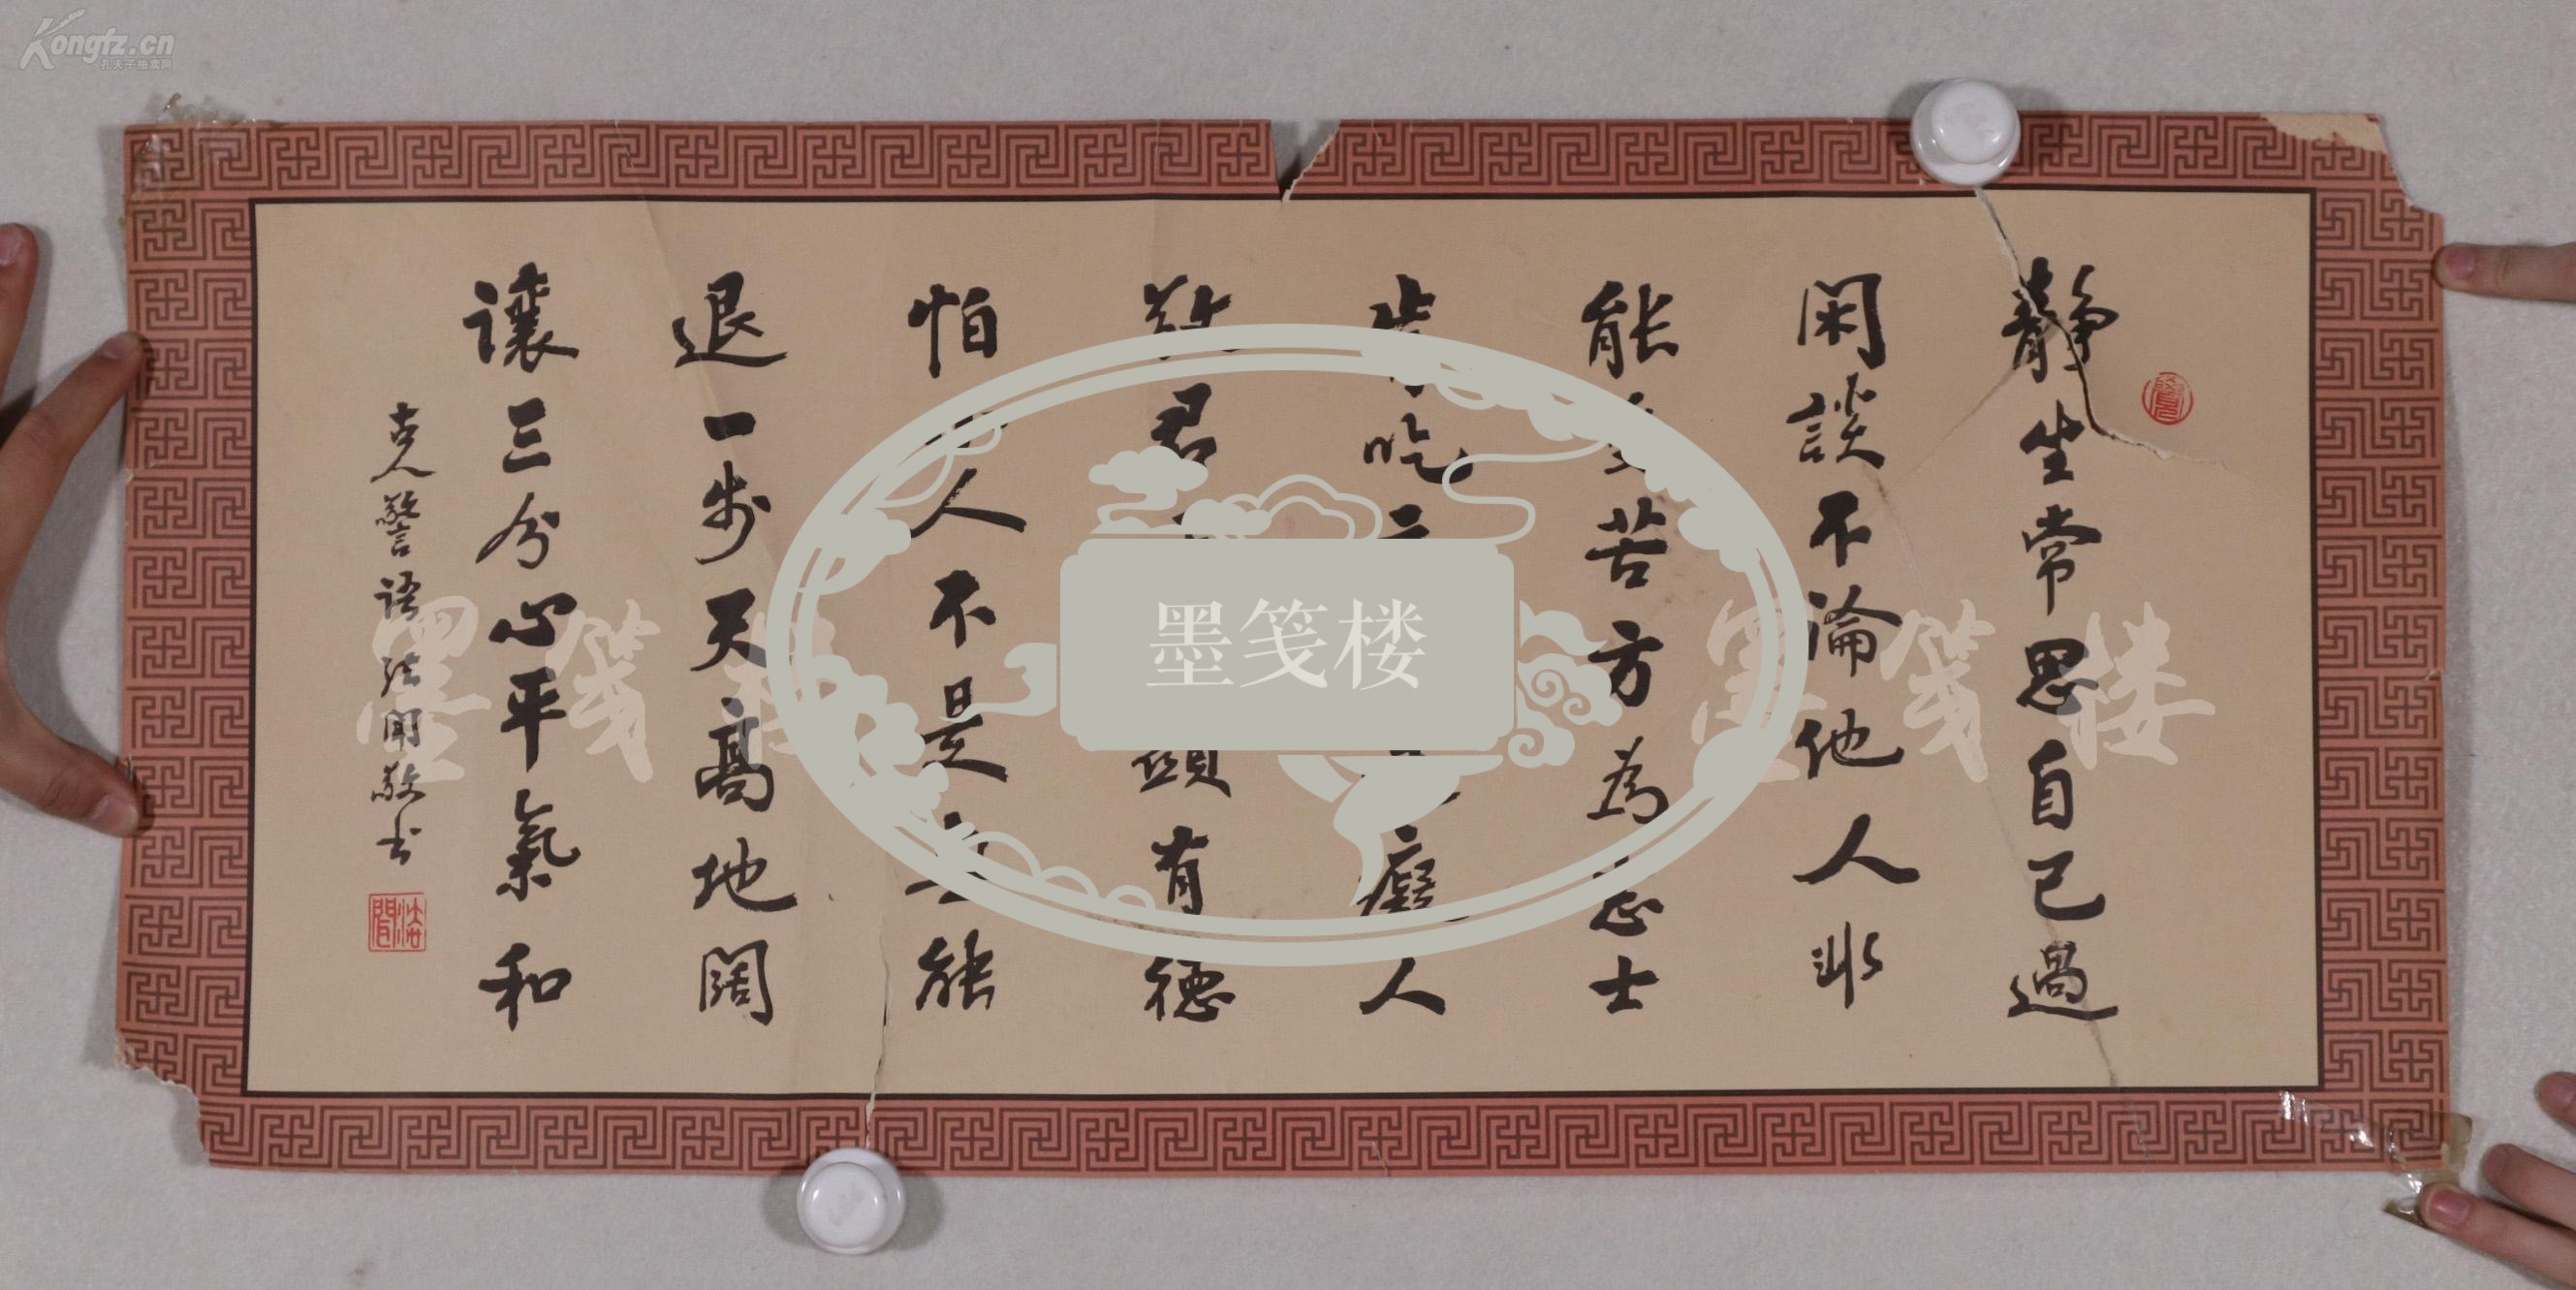 Kongfz.cn
孔夫子拍卖网
靜坐常思自己過
閑談不論他人非
能苦方為志士
肯吃癡人
敬君顯有德
怕人不是能
退一步天高地闊
讓三分心平氣和
警語法敬书
墨笺楼
墨笺楼
墨笺楼